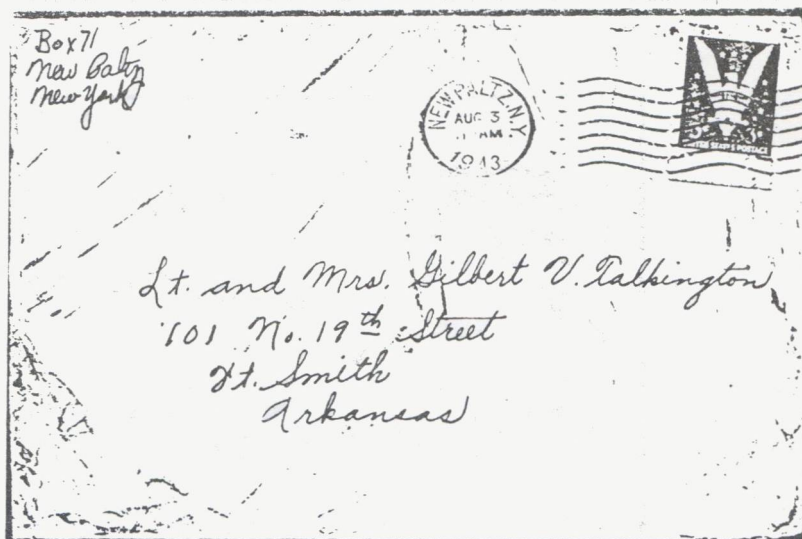 Box 71
New Paltz
New York
NEW PALTZ, N.Y.
AUG 3
AM
1943
UNITED STATES POSTAGE
Lt. and Mrs. Gilbert V. Talkington
101 No. 19th Street
Ft. Smith
Arkansas